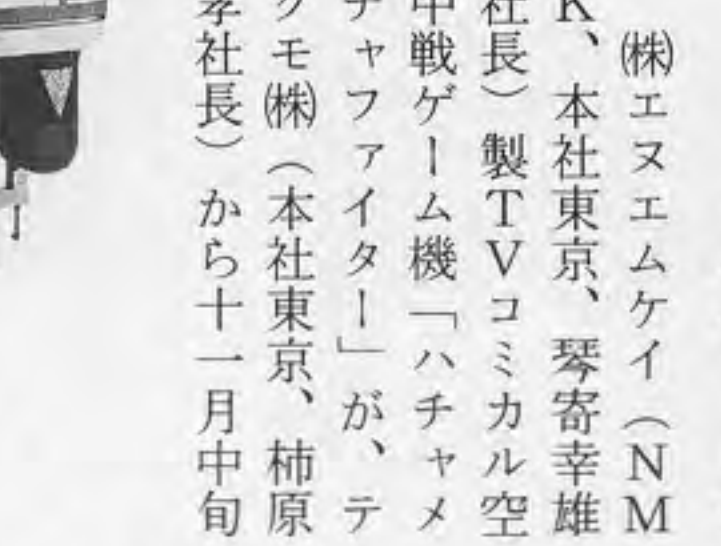 ㈱エヌエムケイ(NM
K、本社東京、琴寄幸雄
社長)製TVコミカル空
中戦ゲーム機「ハチャメ
チャファイター」が、テ
クモ㈱(本社東京、柿原
孝社長)から十一月中旬